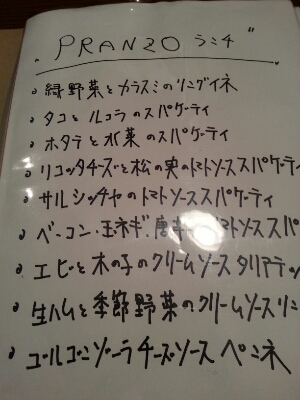 "PRANZO ランチ"
緑野菜とカラスミのリングイネ
タコとルコラのスパゲーティ
ホタテと水菜のスパゲーティ
リコッタチーズと松の実のトマトソーススパゲーティ
サルシッチャのトマトソーススパゲーティ
ベーコン・玉ネギ・唐 トマトソーススパ
エビと木の子のクリームソースタリアテッ
生ハムと季節野菜のクリームソースリン
ゴルゴンゾーラチーズソースペンネ